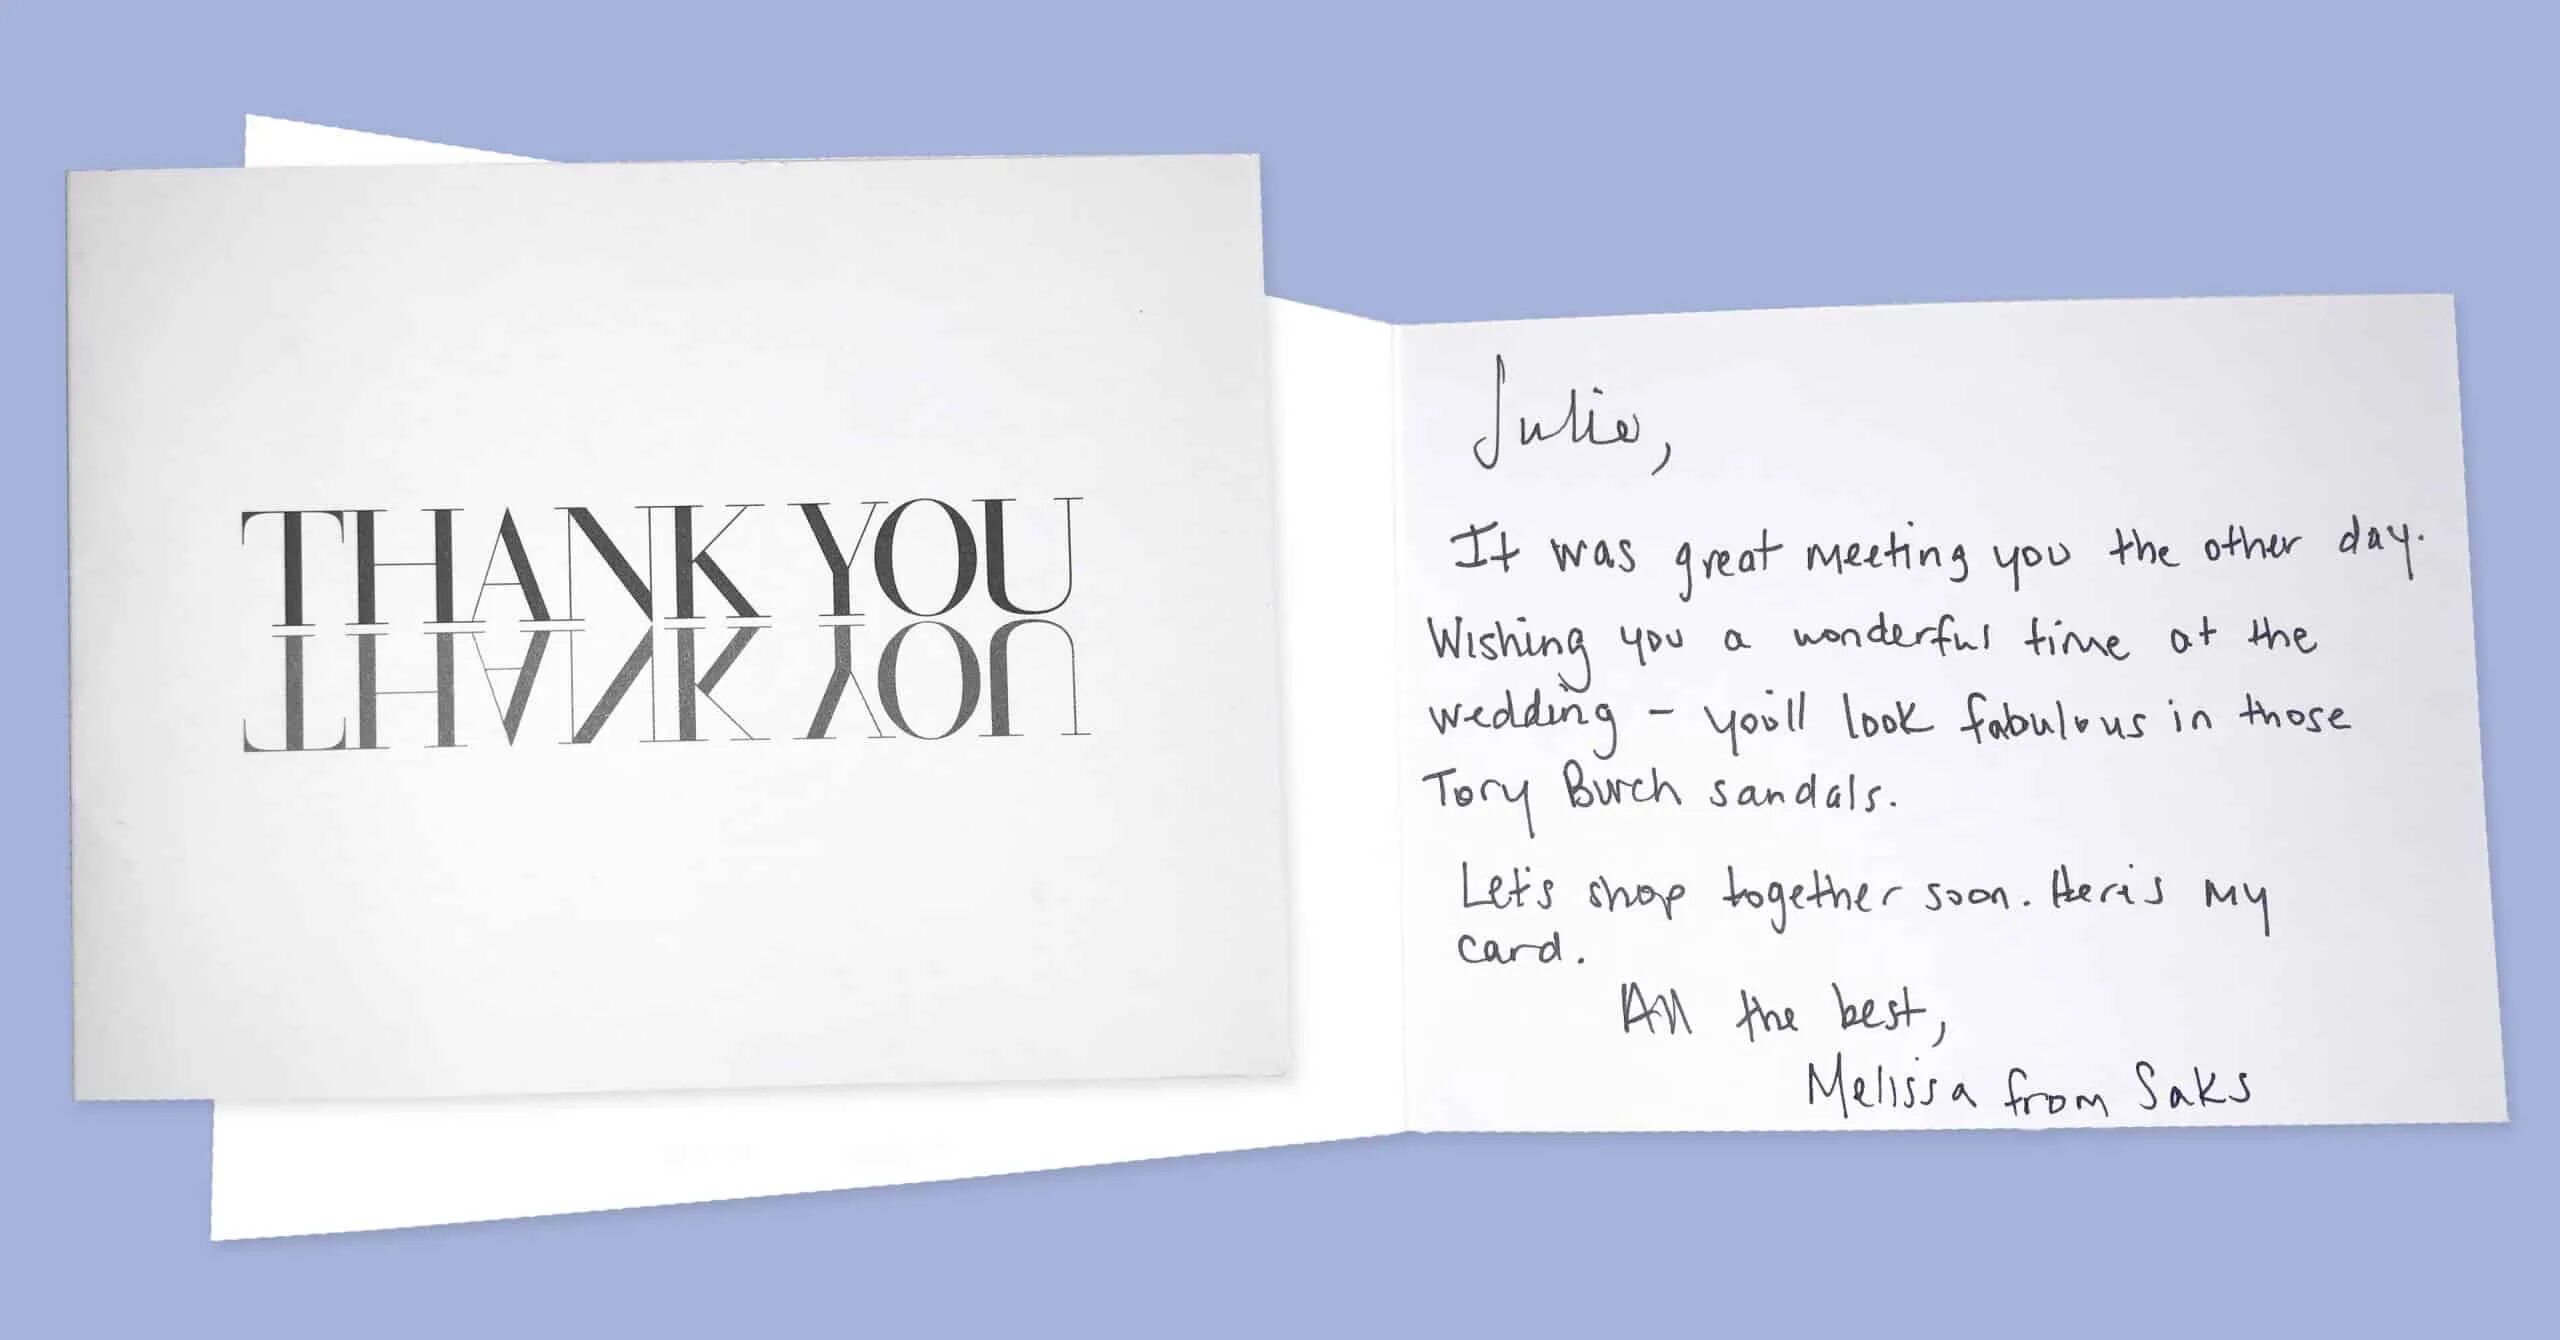 THANK YOU
THANK YOU
Julie,
It was great meeting you the other day.
Wishing you a wonderful time at the
wedding - you'll look fabulous in those
Tory Burch sandals.
Let's shop together soon. Here's my
card.
All the best,
Melissa from Saks